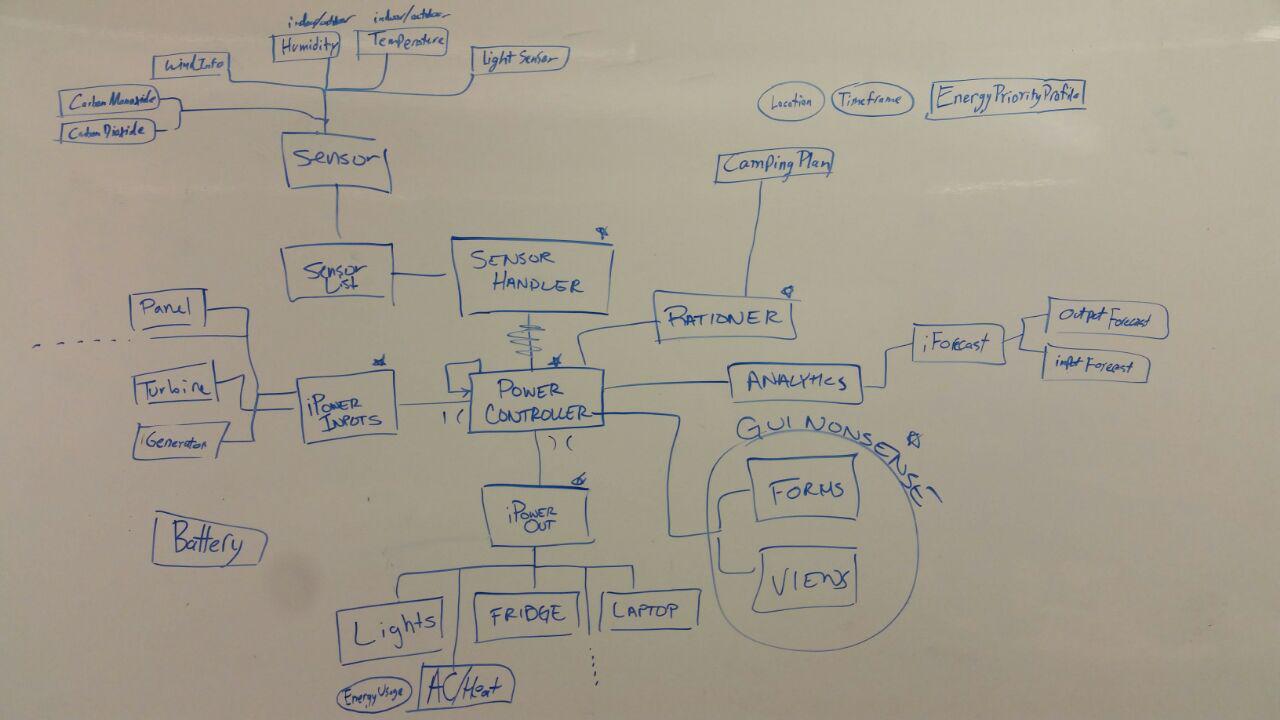 indoor/outdoor
Humidity
indoor/outdoor
Temperature
Wind Info
Light Sensor
Carbon Monoxide
Carbon Dioxide
Sensor
Location
Timeframe
EnergyPriorityProfile
CampingPlan
Sensor
List
SENSOR
HANDLER
RATIONER
Panel
Turbine
iGenerator
iPOWER
INPUTS
POWER
CONTROLLER
ANALYTICS
iForecast
Output Forecast
input Forecast
GUI NONSENSE
FORMS
VIEWS
iPOWER
OUT
Battery
Lights
FRIDGE
LAPTOP
Energy Usage
AC/Heat